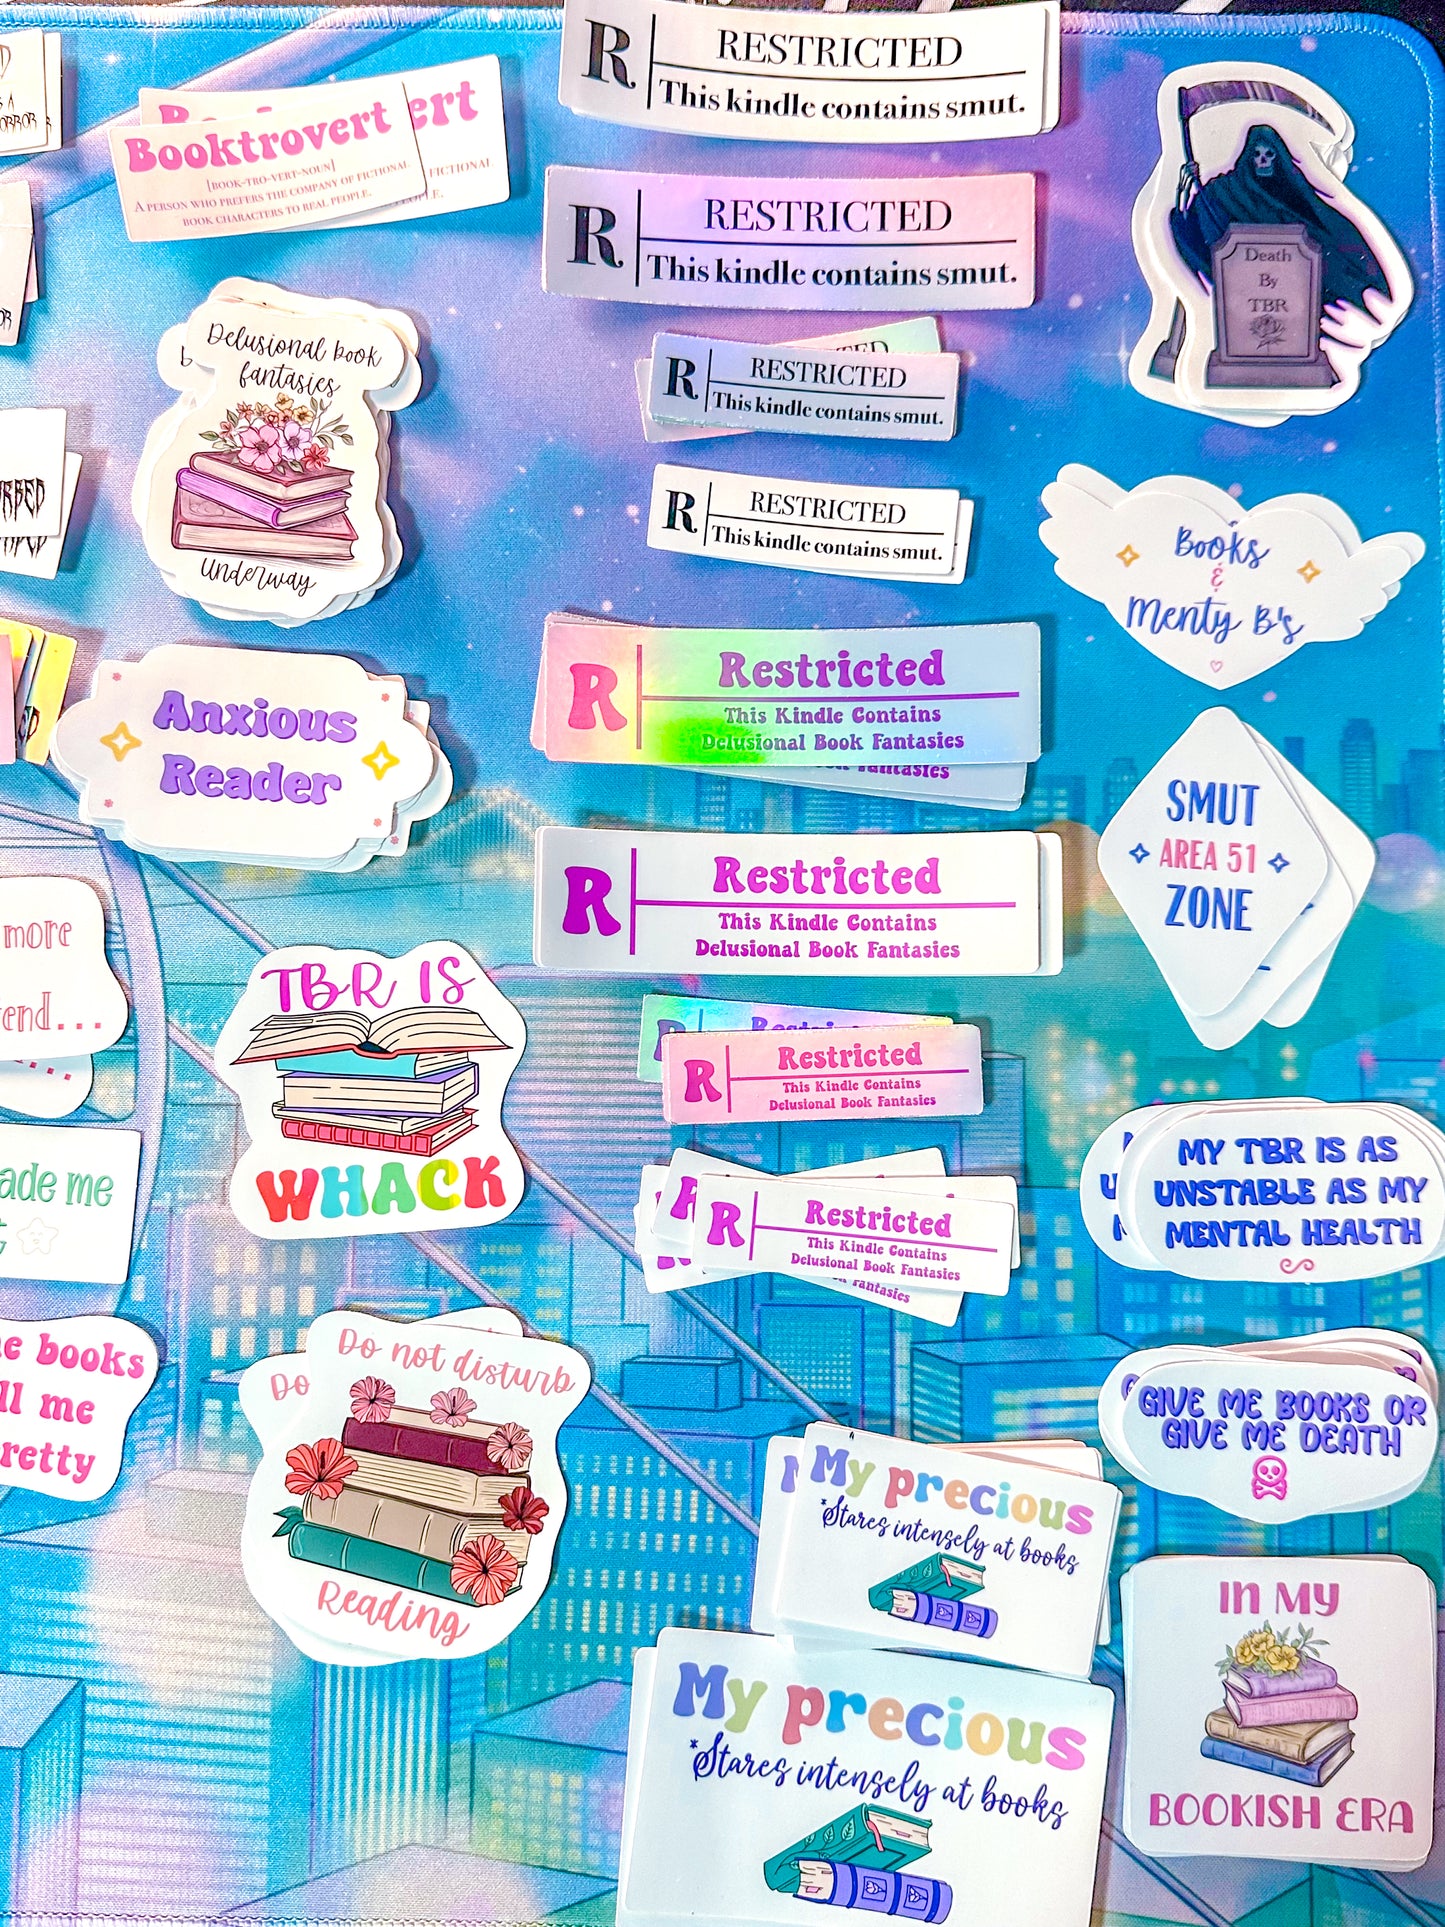 Booktrovert
[BOOK-TRO-VERT-NOUN]
A PERSON WHO PREFERS THE COMPANY OF FICTIONAL
BOOK CHARACTERS TO REAL PEOPLE.
ert
FICTIONAL
Delusional book
fantasies
Underway
Anxious
Reader
more
end...
ade me
e books
ll me
retty
TBR IS
WHACK
Do not disturb
Do
Reading
R
RESTRICTED
This kindle contains smut.
R
RESTRICTED
This kindle contains smut.
R
RESTRICTED
This kindle contains smut.
R
RESTRICTED
This kindle contains smut.
R
Restricted
This Kindle Contains
Delusional Book Fantasies
Fantasies
R
Restricted
This Kindle Contains
Delusional Book Fantasies
R
Restricted
This Kindle Contains
Delusional Book Fantasies
R
Restricted
This Kindle Contains
Delusional Book Fantasies
Fantasies
My precious
*Stares intensely at books
My precious
*Stares intensely at books
Death
By
TBR
Books
&
Menty B's
SMUT
AREA 51
ZONE
MY TBR IS AS
UNSTABLE AS MY
MENTAL HEALTH
GIVE ME BOOKS OR
GIVE ME DEATH
IN MY
BOOKISH ERA